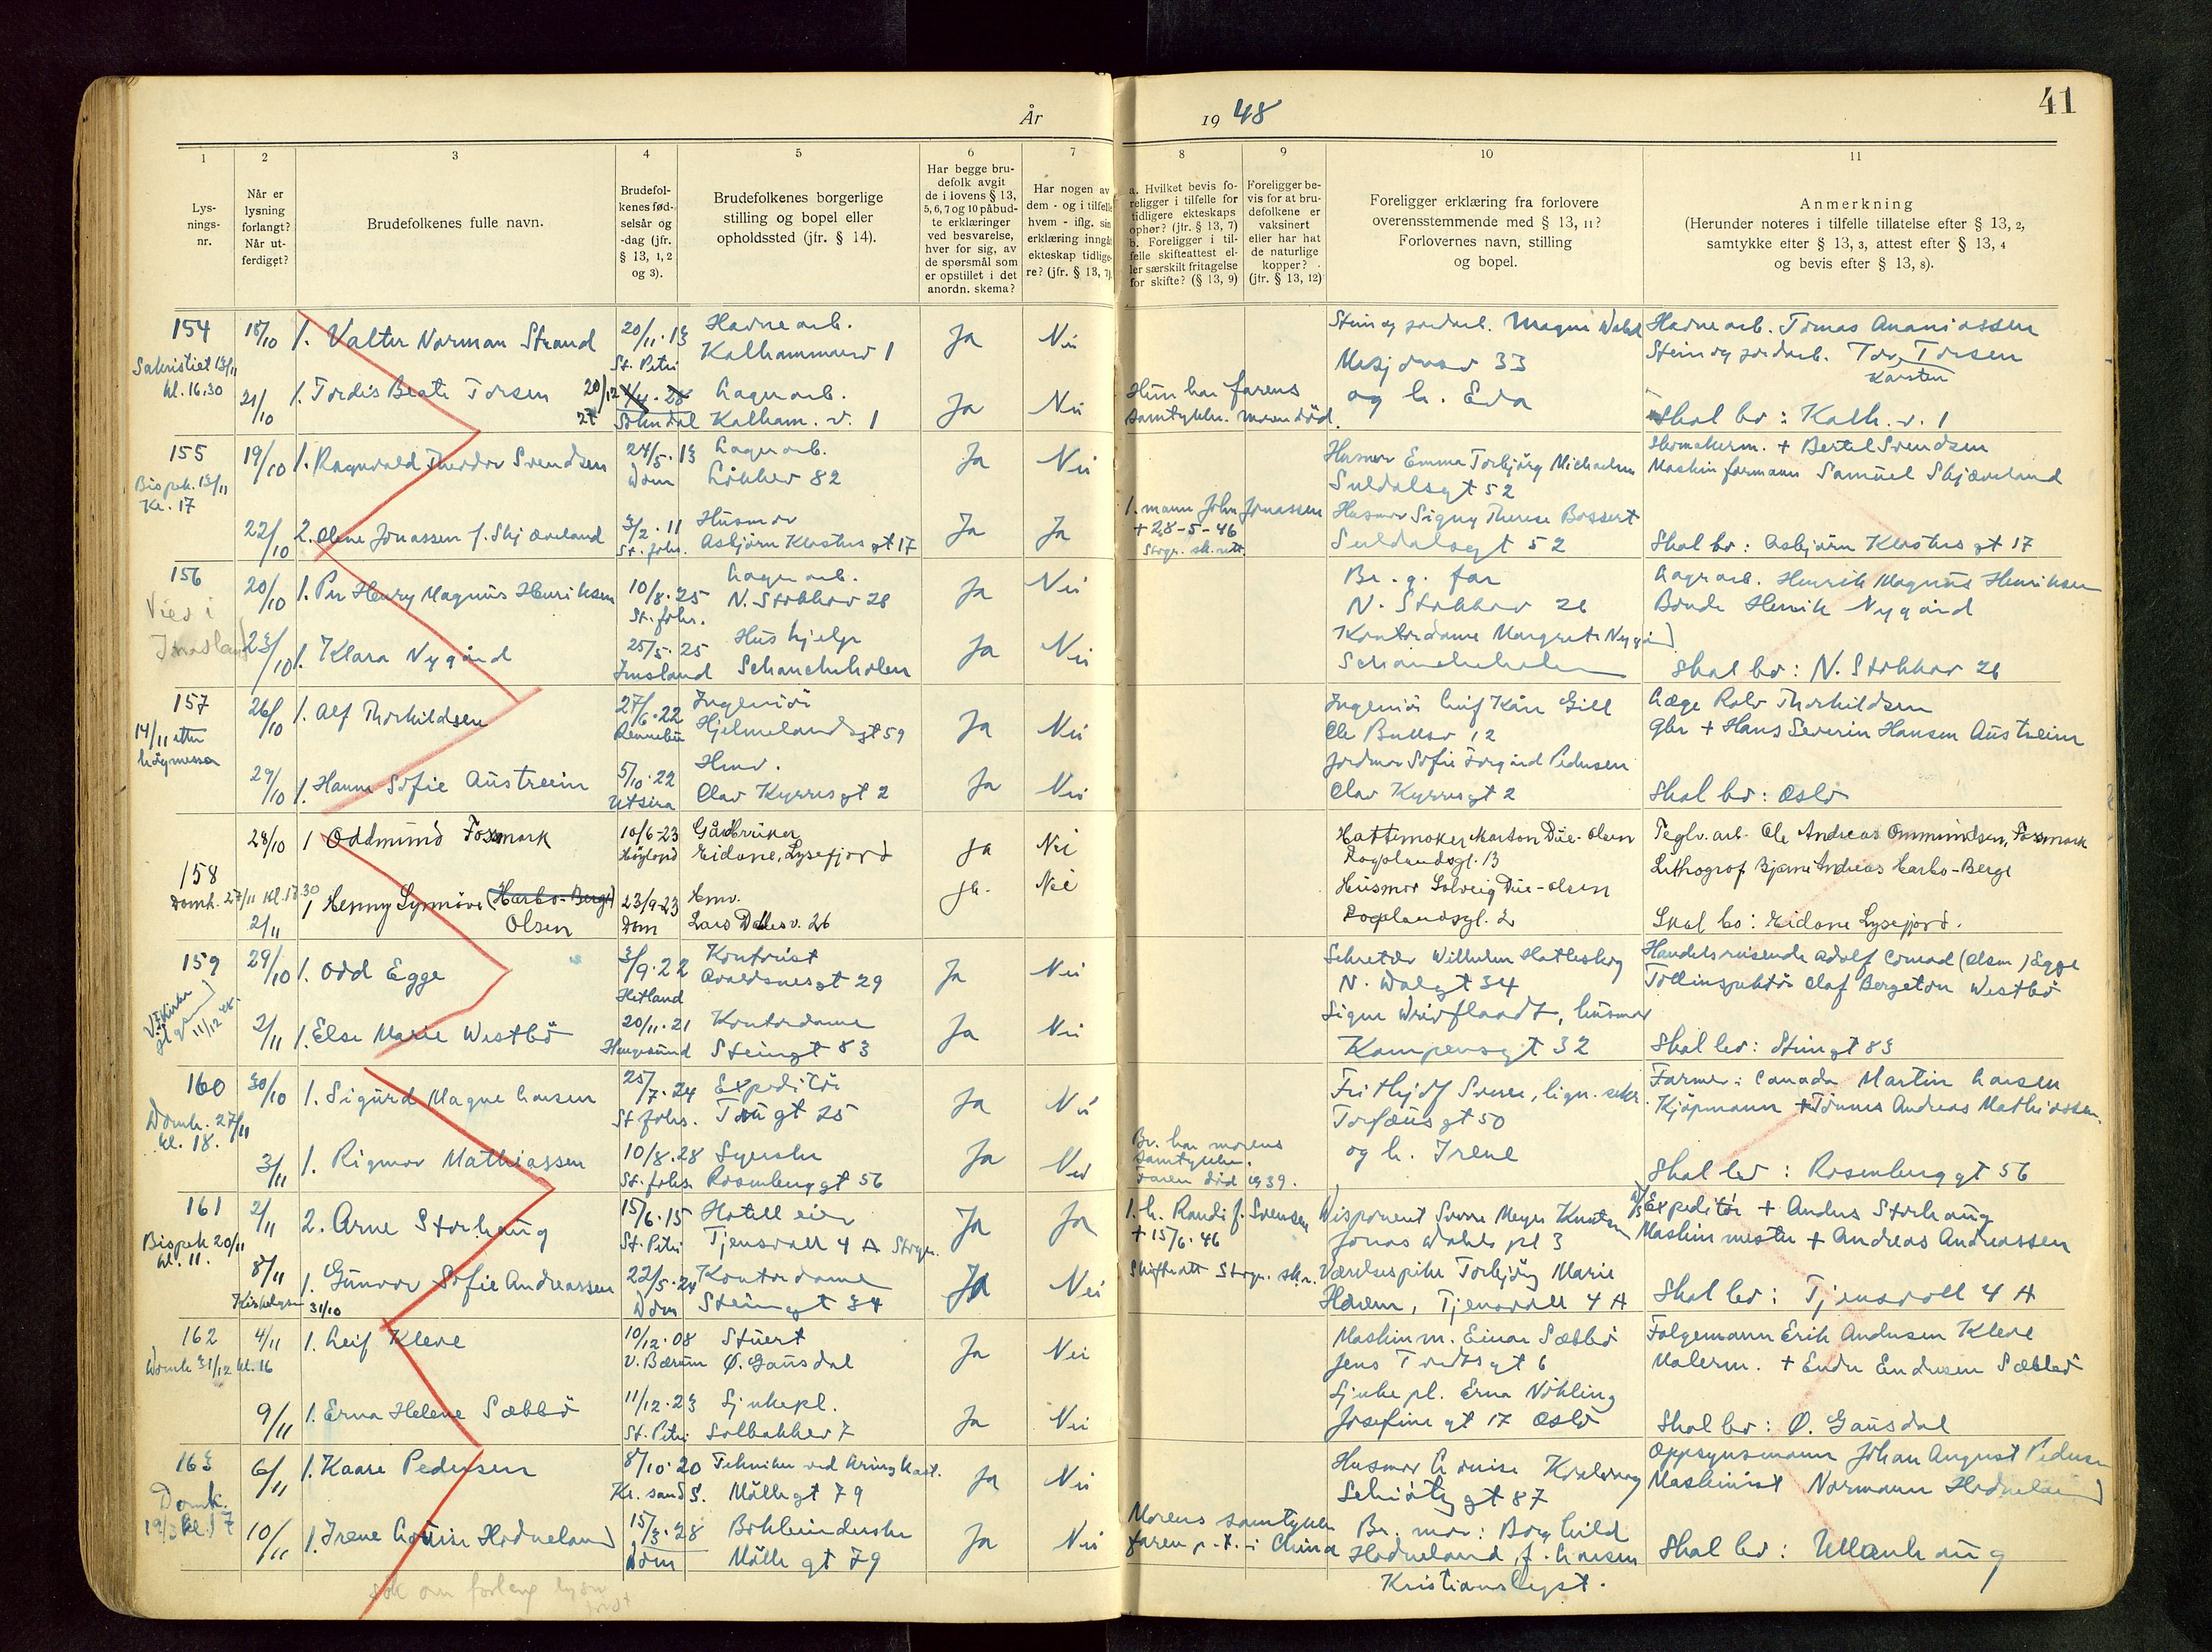 År 1948
41
1 2 3 4 5 6 7 8 9 10 11
Lys-
nings-
nr.
Når er
lysning
forlangt?
Når ut-
ferdiget?
Brudefolkenes fulle navn.
Brudefol-
kenes fød-
selsår og
-dag (jfr.
§ 13, 1, 2
og 3).
Brudefolkenes borgerlige
stilling og bopel eller
opholdssted (jfr. § 14).
Har begge bru-
defolk avgit
de i lovens § 13,
5, 6, 7 og 10 påbud-
te erklæringer
ved besvarelse,
hver for sig, av
de spørsmål som
er opstillet i det
anordn. skema?
Har nogen av
dem - og i tilfelle
hvem - iflg. sin
erklæring inngåt
ekteskap tidlige-
re? (jfr. § 13, 7).
a. Hvilket bevis fo-
religger i tilfelle for
tidligere ekteskaps
ophør? (jfr. § 13, 7)
b. Foreligger i til-
felle skifteattest el-
ler særskilt fritagelse
for skifte? (§ 13, 9)
Foreligger be-
vis for at bru-
defolkene er
vaksinert
eller har hat
de naturlige
kopper?
(jfr. § 13, 12)
Foreligger erklæring fra forlovere
overensstemmende med § 13, 11?
Forlovernes navn, stilling
og bopel.
Anmerkning
(Herunder noteres i tilfelle tillatelse efter § 13, 2,
samtykke efter § 13, 3, attest efter § 13, 4
og bevis efter § 13, 8).
154
Sakristiet 13/11
kl. 16.30
18/10 1. Valter Norman Strand 20/11.13 Havnearb. Ja Nei
St. Petri Kalhammarv 1
21/10 1. Tordis Beate Torsen 20/12 27 Lagerarb. Ja Nei
Sokndal Kalham. v. 1
Hun har farens
samtykke. moren död.
Stein og jordarb. Magne Wahl
33
og h. Eva
Havnearb. Tomas Ananiassen
Stein og jordarb. Tor Torsen
Karsten
Skal bo: Kalh. v. 1
155
Bispek. 13/11
Kl. 17
19/10 1. Ragnvald Theodor Svendsen 24/5.13 Lagerarb. Ja Nei
Dom Lökkev 82
22/10 2. Olene Jonassen f. Skjæveland 3/2.11 Husmor Ja Ja
St. Johs. Asbjörn Klostersgt 17
1. mann John Jonassen
+ 28-5-46
Stvgr. sk.rett.
Husmor Emma Torbjörg Michaelsen
Suldalsgt 52
Husmor Signy Therese Bossert
Suldalsgt 52
Skomakerm. + Bertel Svendsen
Maskinformann Samuel Skjæveland
Skal bo: Asbjörn Klosters gt 17
156
Vies i
Imsland
20/10 1. Per Henry Magnus Henriksen 10/8.25 Lagerarb. Ja Nei
St. Johs. N. Stokkav 28
23/10 1. Klara Nygård 25/5.25 Hushjelp Ja Nei
Imsland Schancheholen
Br. g. far
N. Stokkav 26
Kontordame Margrete Nygård
Schancheholen
Lagerarb. Henrik Magnus Henriksen
Bonde Henrik Nygård
Skal bo: N. Stokkav 26
157
14/11 etter
högmessa
26/10 1. Alf Thorkildsen 27/6.22 Ingeniör Ja Nei
Rennebu Hjelmelandsgt 59
29/10 1. Hanne Sofie Austreim 5/10.22 Hmv. Ja Nei
Utsira Olav Kyrresgt 2
Ingeniör Leif Kåre Gill
Ole Bullsv 12
Jordmor Sofie Forgård Pedersen
Olav Kyrresgt 2
Læge Rolv Thorkildsen
Gbr + Hans Severin Hansen Austreim
Skal bo: Oslo
158
Domk. 27/11 kl. 17.30
28/10 1 Oddmund Fossmark 10/6-23 Gårdbruker Ja Nei
Høyland Eidane, Lysefjord
2/11 1 Henny Synnöve (Harbo-Berge) Olsen 23/9-23 Hmv. Ja. Nei
Dom Lars Dallesv. 26
Hattemaker Marton Due-Olsen
Rogalandsgt. 13
Husmor Solveig Due-Olsen
Rogalandsgt. 2
Teglv.arb. Ole Andreas Ommundsen, Fossmark
Lithograf Bjarne Andreas Harbo-Berge
Skal bo: Eidane Lysefjord.
159
29/10 1. Odd Egge 3/9.22 Kontorist Ja Nei
Hetland Avaldsnesgt 29
2/11 1. Else Marie Westbö 20/11.21 Kontordame Ja Nei
Haugesund Steingt 83
Sekretær Wilhelm Hatlesberg
N. Dalgt 34
Signe Wrisflaadt, husmor
Kampensgt 32
Handelsreisende Adolf Conrad (Olsen) Egge
Tollinspektör Olaf Bergeton Westbö
Skal bo: Steingt 83
160
Domk. 27/11
kl. 18.
30/10 1. Sigurd Magne Larsen 25/7.24 Expeditör Ja Nei
St. Johs. Taugt 25
3/11 1. Rigmor Mathiassen 10/8.28 Syerske Ja Nei
St. Johs. Rosenberggt 56
Br. har morens
samtykke.
Faren död 1939.
Frithjof Svense, lign. sekr.
Torfæusgt 50
og h. Irene
Farmer i Canada Martin Larsen
Kjöpmann + Tönnes Andreas Mathiassen
Skal bo: Rosenberggt 56
161
Bispek 20/11
kl. 11.
2/11 2. Arne Storhaug 15/6.15 Hotelleier Ja Ja
St. Petri Tjensvoll 4 A Stvgr.
8/11 1. Gunvor Sofie Andreassen 22/5.24 Kontordame Ja Nei
31/10 Dom Steingt 34
1. h. Randi f. Svensen
+ 15/6.46
Skifteatt Stvgr. sk.r.
Disponent Sverre Meyer Knutsen
Jonas Dahls pl 3
Værelsespike Torbjörg Marie
Hovem, Tjensvoll 4 A
Expeditör + Anders Storhaug
Maskinmester + Andreas Andreassen
Skal bo: Tjensvoll 4 A
162
Domk 31/12 kl. 16
4/11 1. Leif Kleve 10/12.08 Stuert Ja Nei
V. Bærum Ö. Gausdal
9/11 1. Erna Helene Sæbbö 11/12.23 Sjukepl. Ja Nei
St. Petri Solbakkev 7
Maskinm. Einar Sæbbö
Jens Tvedtsgt 6
Sjukepl. Erna Nökling
Josefinegt 17 Oslo
Folgemann Erik Andersen Kleve
Malerm. + Endre Endresen Sæbbö
Skal bo: Ö. Gausdal
163
Domk.
19/3 kl. 17
6/11 1. Kaare Pedersen 8/10.20 Tekniker ved kringkast. Ja Nei
Kr. sand S. Möllegt 79
10/11 1. Irene Louise Hodneland 15/3.28 Bokbinderske Ja Nei
Dom Möllegt 79
Morens samtykke
faren p.t. i China
Husmor Louise
Schiötzgt 87
Br. mor: Borghild
Hodneland f. Larsen
Kristianslyst.
Oppsynsmann Johan August Pedersen
Maskinist Normann Hodneland
Skal bo: Ullenhaug
søk om forleng lysn frist